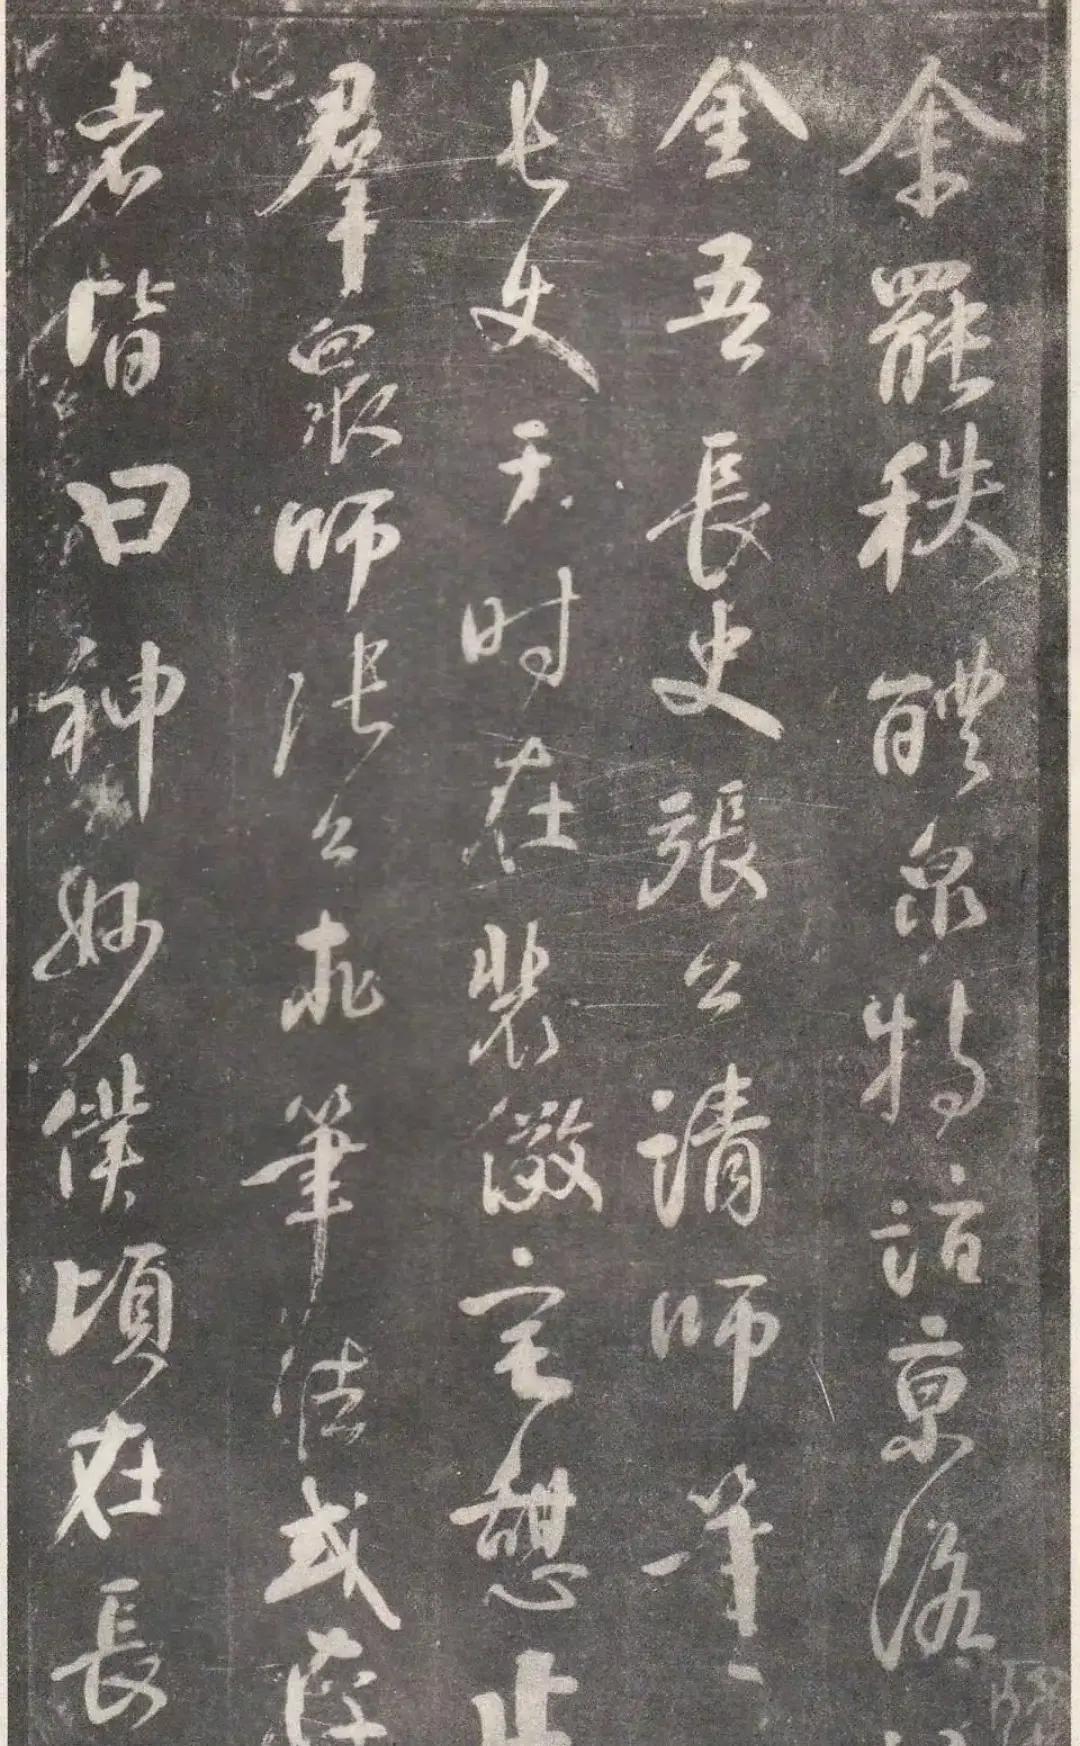 余罷秩醴泉特詣京洛
金吾長史張公請師筆
長史于时在裴儆宅憩止
羣眾師張公求筆法或存
者皆曰神妙僕頃在長